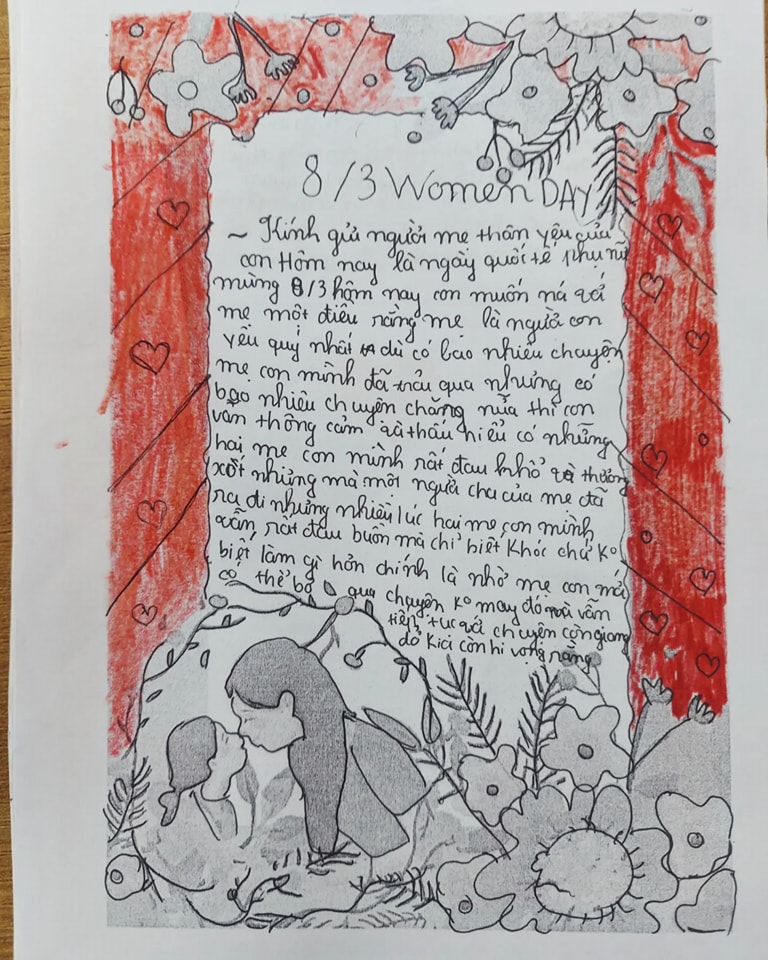 8/3 Women DAY
~ Kính gửi người mẹ thân yêu của
con Hôm nay là ngày quốt tế phụ nữ
mừng 8/3 hôm nay con muốn nó với
mẹ một điều rằng mẹ là người con
yêu quý nhất dù có bao nhiêu chuyện
mẹ con mình đã trải qua nhưng có
bao nhiêu chuyện chăng nữa thì con
vẫn thông cảm và thấu hiểu có những
hai mẹ con mình rất đau khổ và thương
xót nhưng mà một người cha của mẹ đã
ra đi nhưng nhiều lúc hai mẹ con mình
vẫn rất đau buồn mà chỉ biết khóc chứ ko
biết làm gì hơn chính là nhờ mẹ con mới
có thể bỏ qua chuyện ko may đó mà vẫn
tiếp tục với chuyện còn giang
dở còn hi vọng rằng